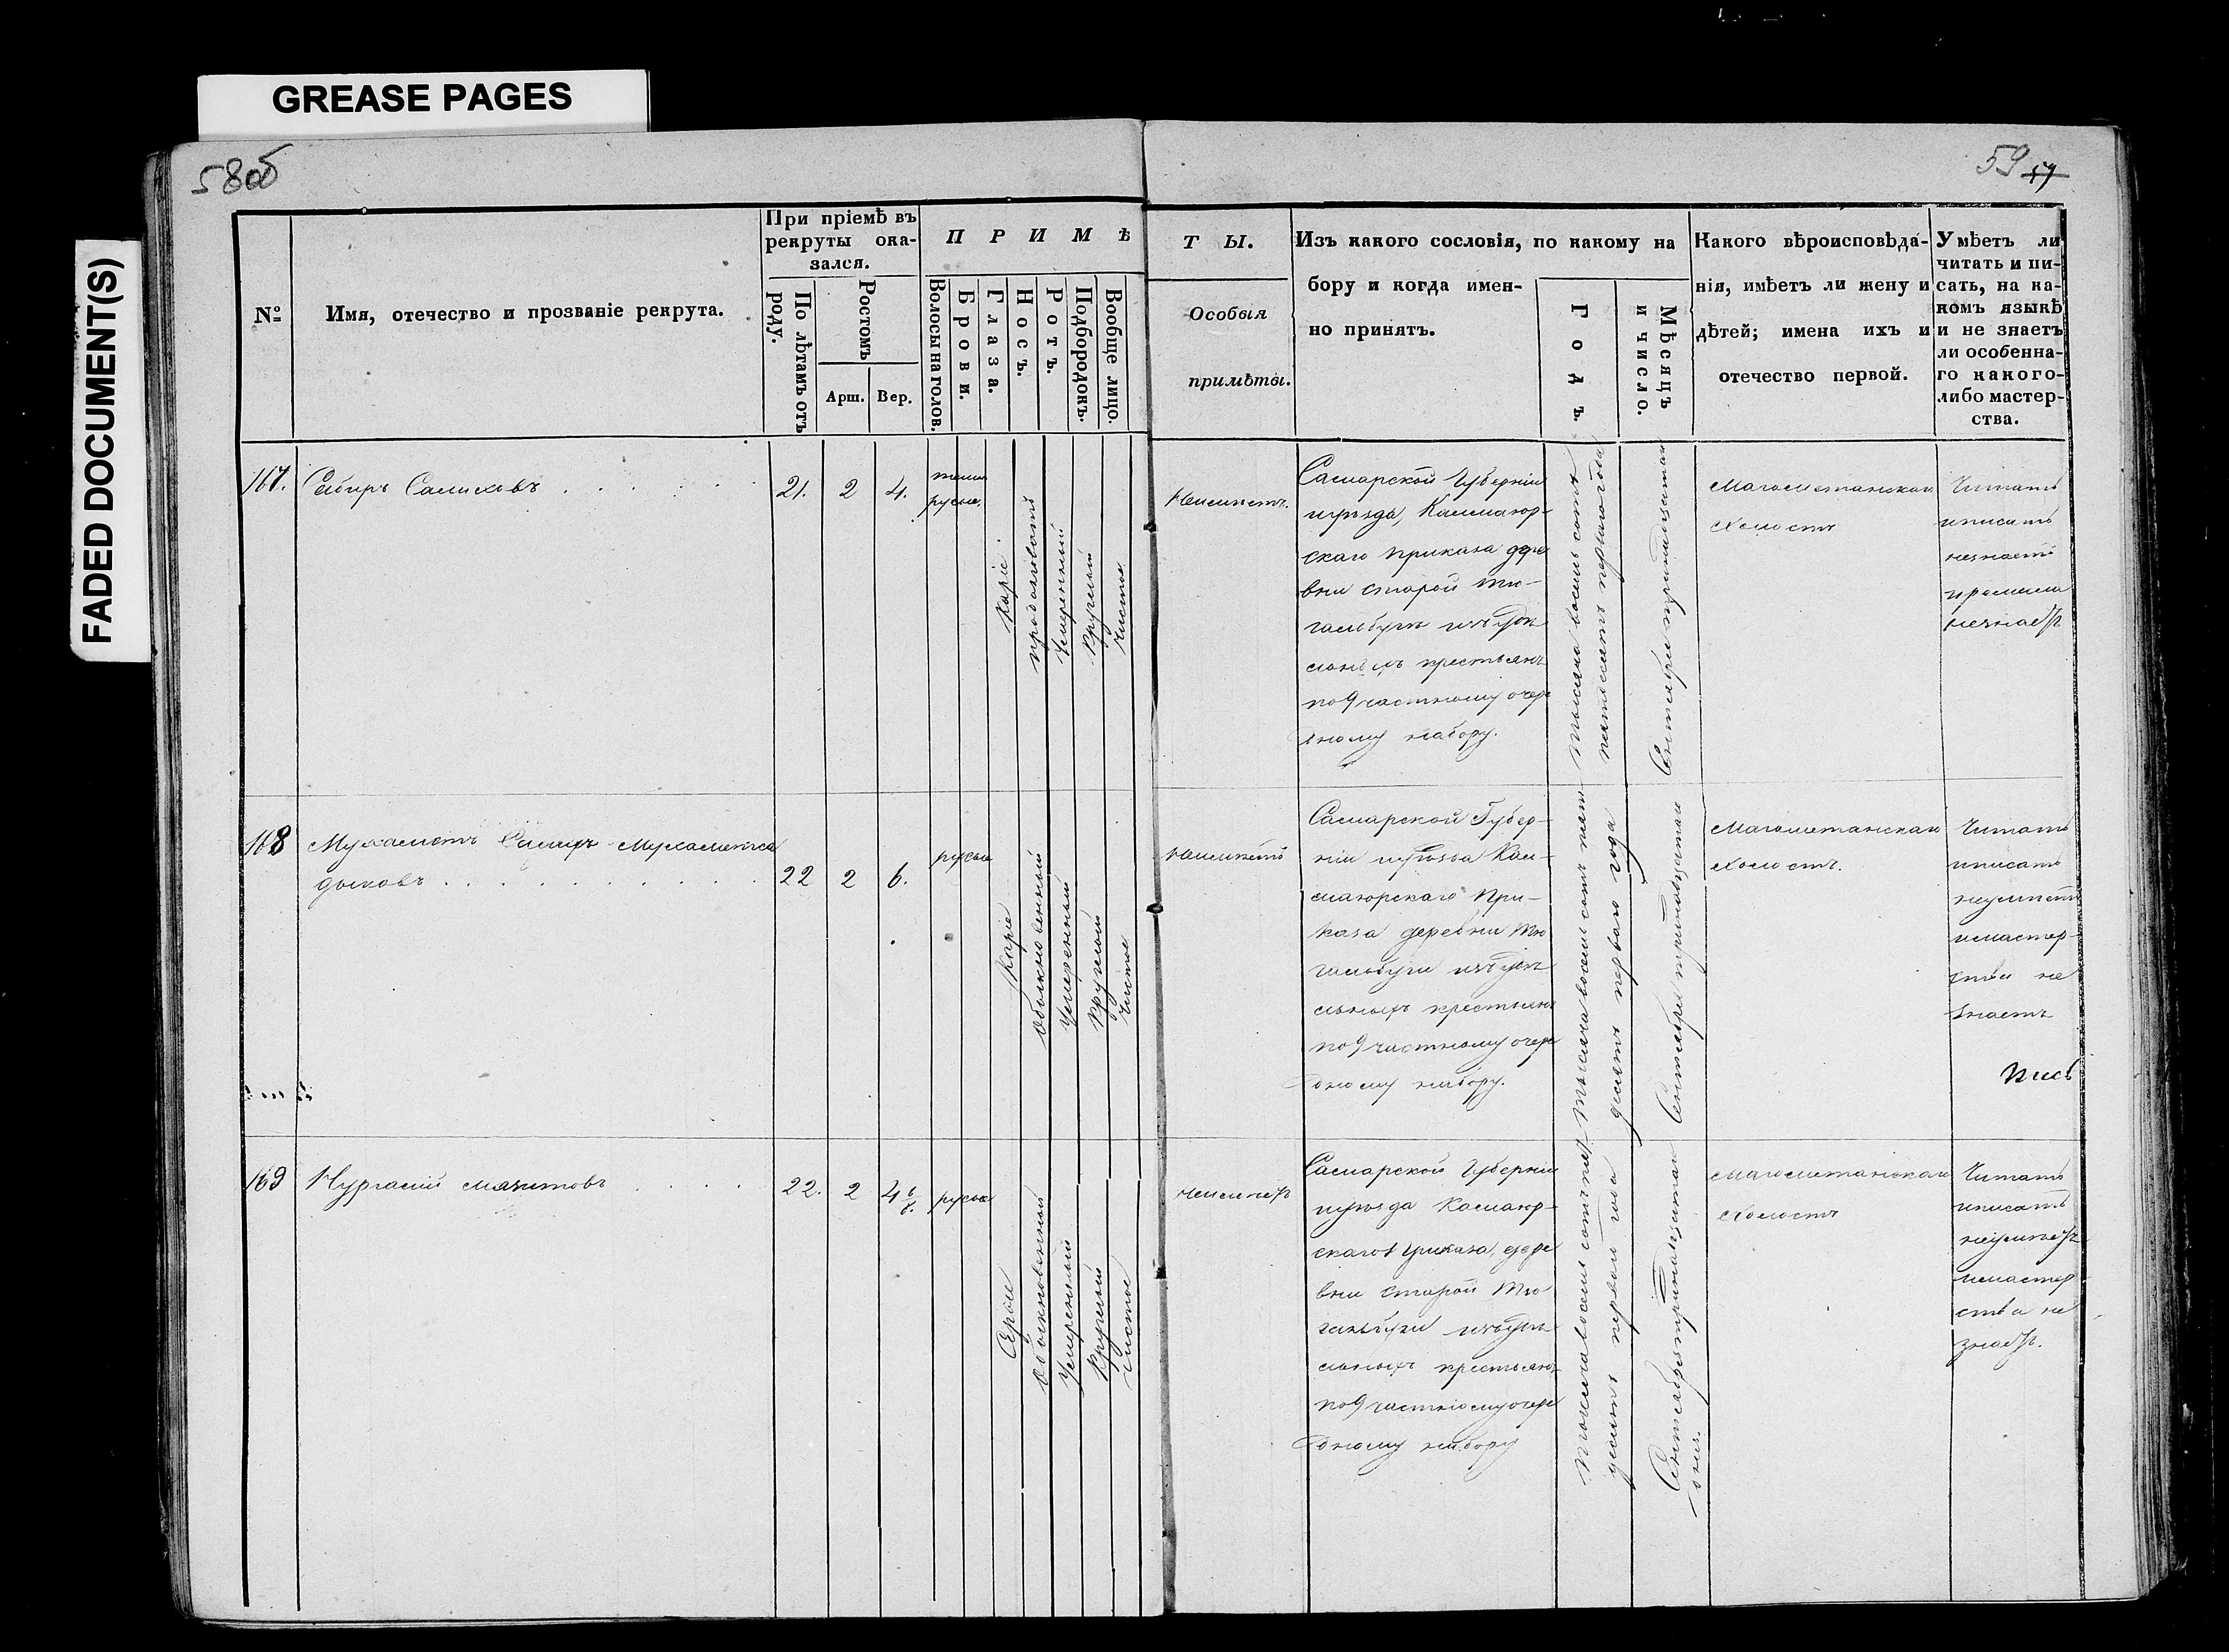 GREASE PAGES
FADED DOCUMENT(S)
58 об
59
57
№
Имя, отечество и прозваніе рекрута.
При пріемѣ въ
рекруты ока-
зался.
По лѣтамъ отъ
роду.
Ростомъ
Арш.
Вер.
ПРИМѢ
Волосы на голов.
Брови.
Глаза.
Носъ.
Ротъ.
Подбородокъ.
Вообще лицо.
ТЫ.
Особыя
примѣты.
Изъ какого сословія, по какому на
бору и когда имен-
но принятъ.
Годъ.
Мѣсяцъ
и число.
Какого вѣроисповѣда-
нія, имѣетъ ли жену и
дѣтей; имена ихъ и
отечество первой.
Умѣетъ ли
читать и пи-
сать, на ка-
комъ языкѣ
и не знаетъ
ли особенна-
го какого-
либо мастер-
ства.
167.
Сабиръ Салиховъ
21.
2
4.
темно
русые
Каріе
продолговатый
Умеренный
Круглый
чистое
неимѣетъ.
Самарской Губерніи
скаго приказа дере
вни старой Тю-
гальбуги изъ удѣ
льныхъ крестьянъ
по 9 частному очере
дному набору.
Тысяча восемь сотъ
пятьдесятъ перваго года
Сентября тринадцатаго
Магометанскаго
холостъ
Читать
и писать
незнаетъ
ремесла
незнаетъ
168
Мухаметъ
дыковъ
22
2
6.
русые
Каріе
Обыкновенный
Умеренный
Круглый
чистое
неимѣетъ
Самарской Губер-
ніи
маюрскаго При-
каза деревни Тю
гальбуги изъ удѣ
льныхъ крестьянъ
по 9 частному очере
дному набору.
Тысяча восемь сотъ пять
десятъ перваго года
Сентября тринадцатаго
Магометанскаго
холостъ.
Читать
и писать
неумѣетъ
и мастер-
ства не
знаетъ
169
Нургалій мязитовъ
22.
2
4 6/8.
русые
Серые
Обыкновенный
Умеренный
Круглый
чистое
неимѣетъ
Самарской Губерніи
скаго Приказа, дере
вни Старой Тю
гальбуги изъ удѣ
льныхъ крестьянъ
по 9 частному очере
дному набору
Тысяча восемь сотъ пять
десятъ перваго года
Сентября тринадцатаго
дня.
магометанскаго
холостъ
Читать
и писать
неумѣетъ
и мастер
ства не
знаетъ.